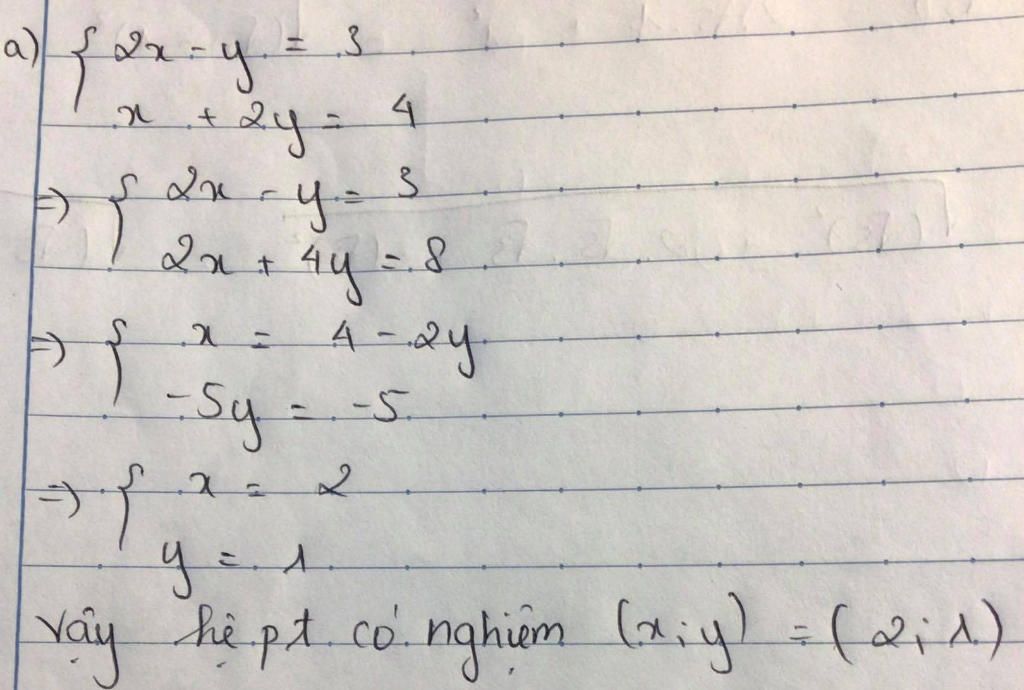 a) { 2x - y = 3
x + 2y = 4
=> { 2x - y = 3
2x + 4y = 8
=> { x = 4 - 2y
-5y = -5
=> { x = 2
y = 1
Vậy hệ pt có nghiệm (x;y) = (2;1)